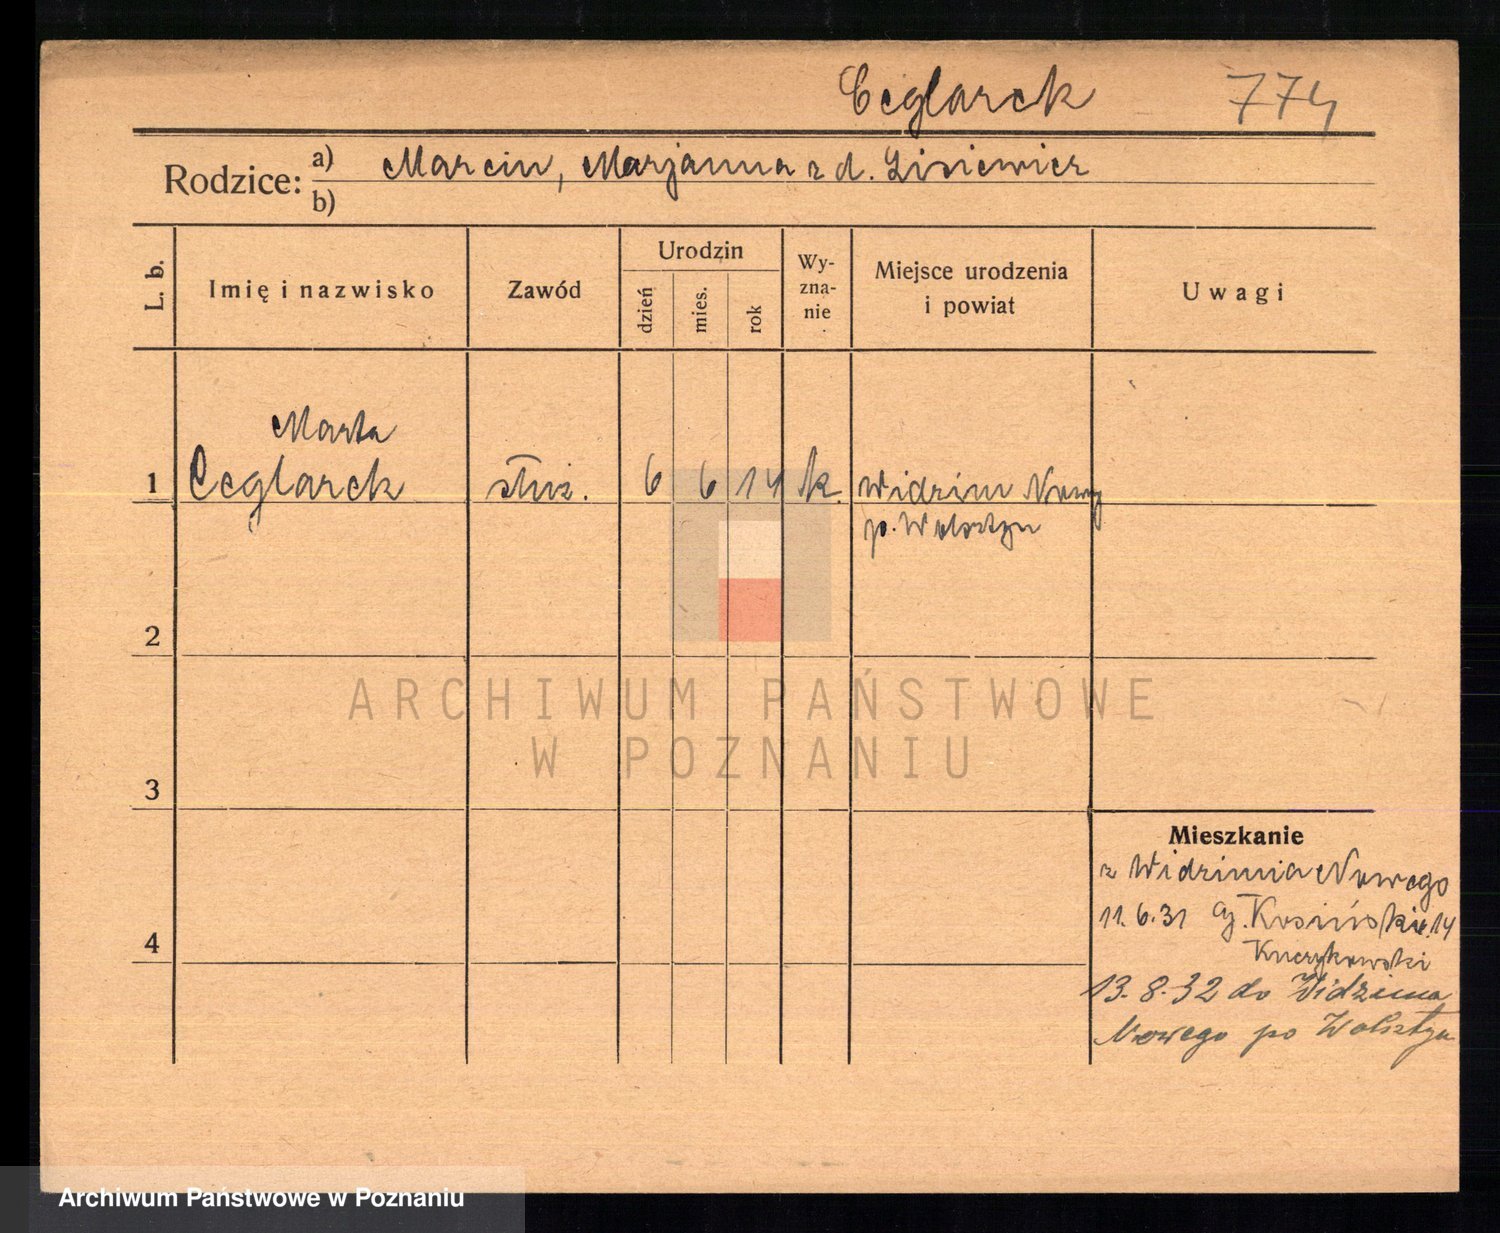 Ceglarek 774
Rodzice: a) Marcin, Marjanna z d. Lisiewicz
b)
L. b.
Imię i nazwisko
Zawód
Urodzin
dzień
mies.
rok
Wy-
zna-
nie
Miejsce urodzenia
i powiat
Uwagi
Marta
1 Ceglarek służ. 6 6 14 k. Widzim Nowy
p. Wolsztyn
2
ARCHIWUM PAŃSTWOWE
W POZNANIU
3
Mieszkanie
z Widzimia Nowego
11.6.31 Kosińskie. 14
4
13.8.32 do Widzima
Nowego po Wolsztyn
Archiwum Państwowe w Poznaniu